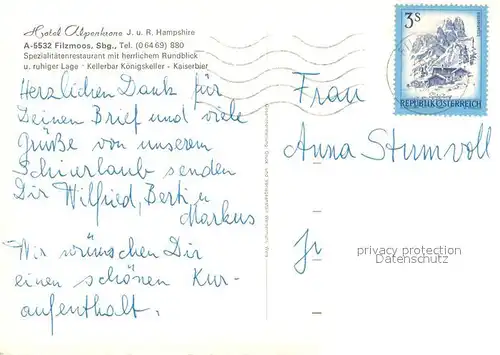 Hotel Alpenkrone J. u. R. Hampshire
A-5532 Filzmoos, Sbg., Tel. (0 64 69) 880
Spezialitätenrestaurant mit herrlichem Rundblick
u. ruhiger Lage · Kellerbar Königskeller · Kaiserbier
Herzlichen Dank für
Deinen Brief und viele
Grüße von unserem
Schiurlaub senden
Dir Wilfried, Berti u
Markus
Wir wünschen Dir
einen schönen Kur-
aufenthalt.
3S
REPUBLIK ÖSTERREICH
Frau
Anna Stumvoll
privacy protection
Datenschutz